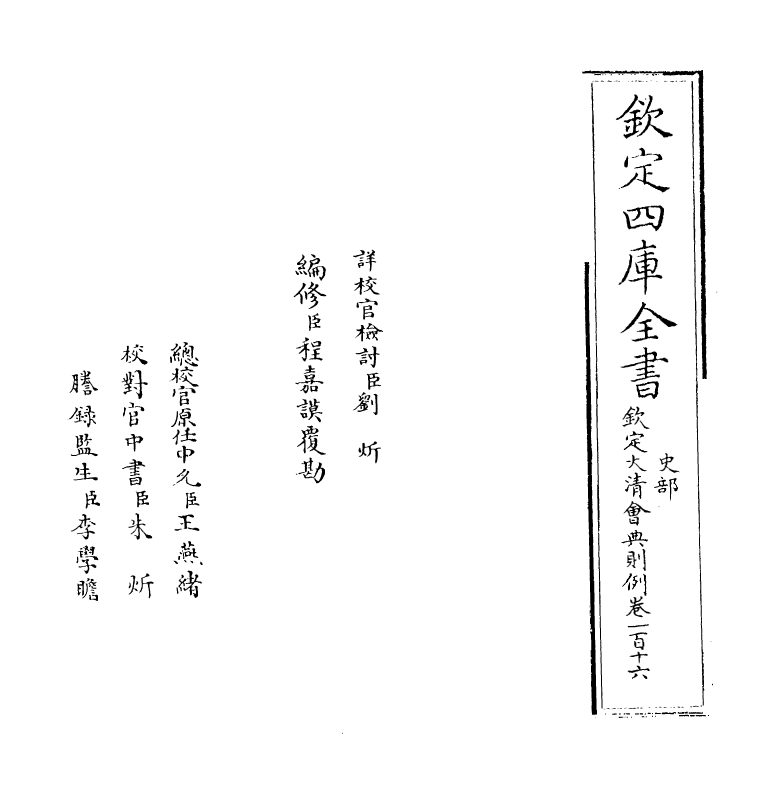 欽定四庫全書
史部
欽定大清會典則例卷一百十六
詳校官檢討臣劉　炘
編修臣程嘉謨覆勘
總校官原任中允臣王燕緒
校對官中書臣朱　炘
謄錄監生臣李學瞻